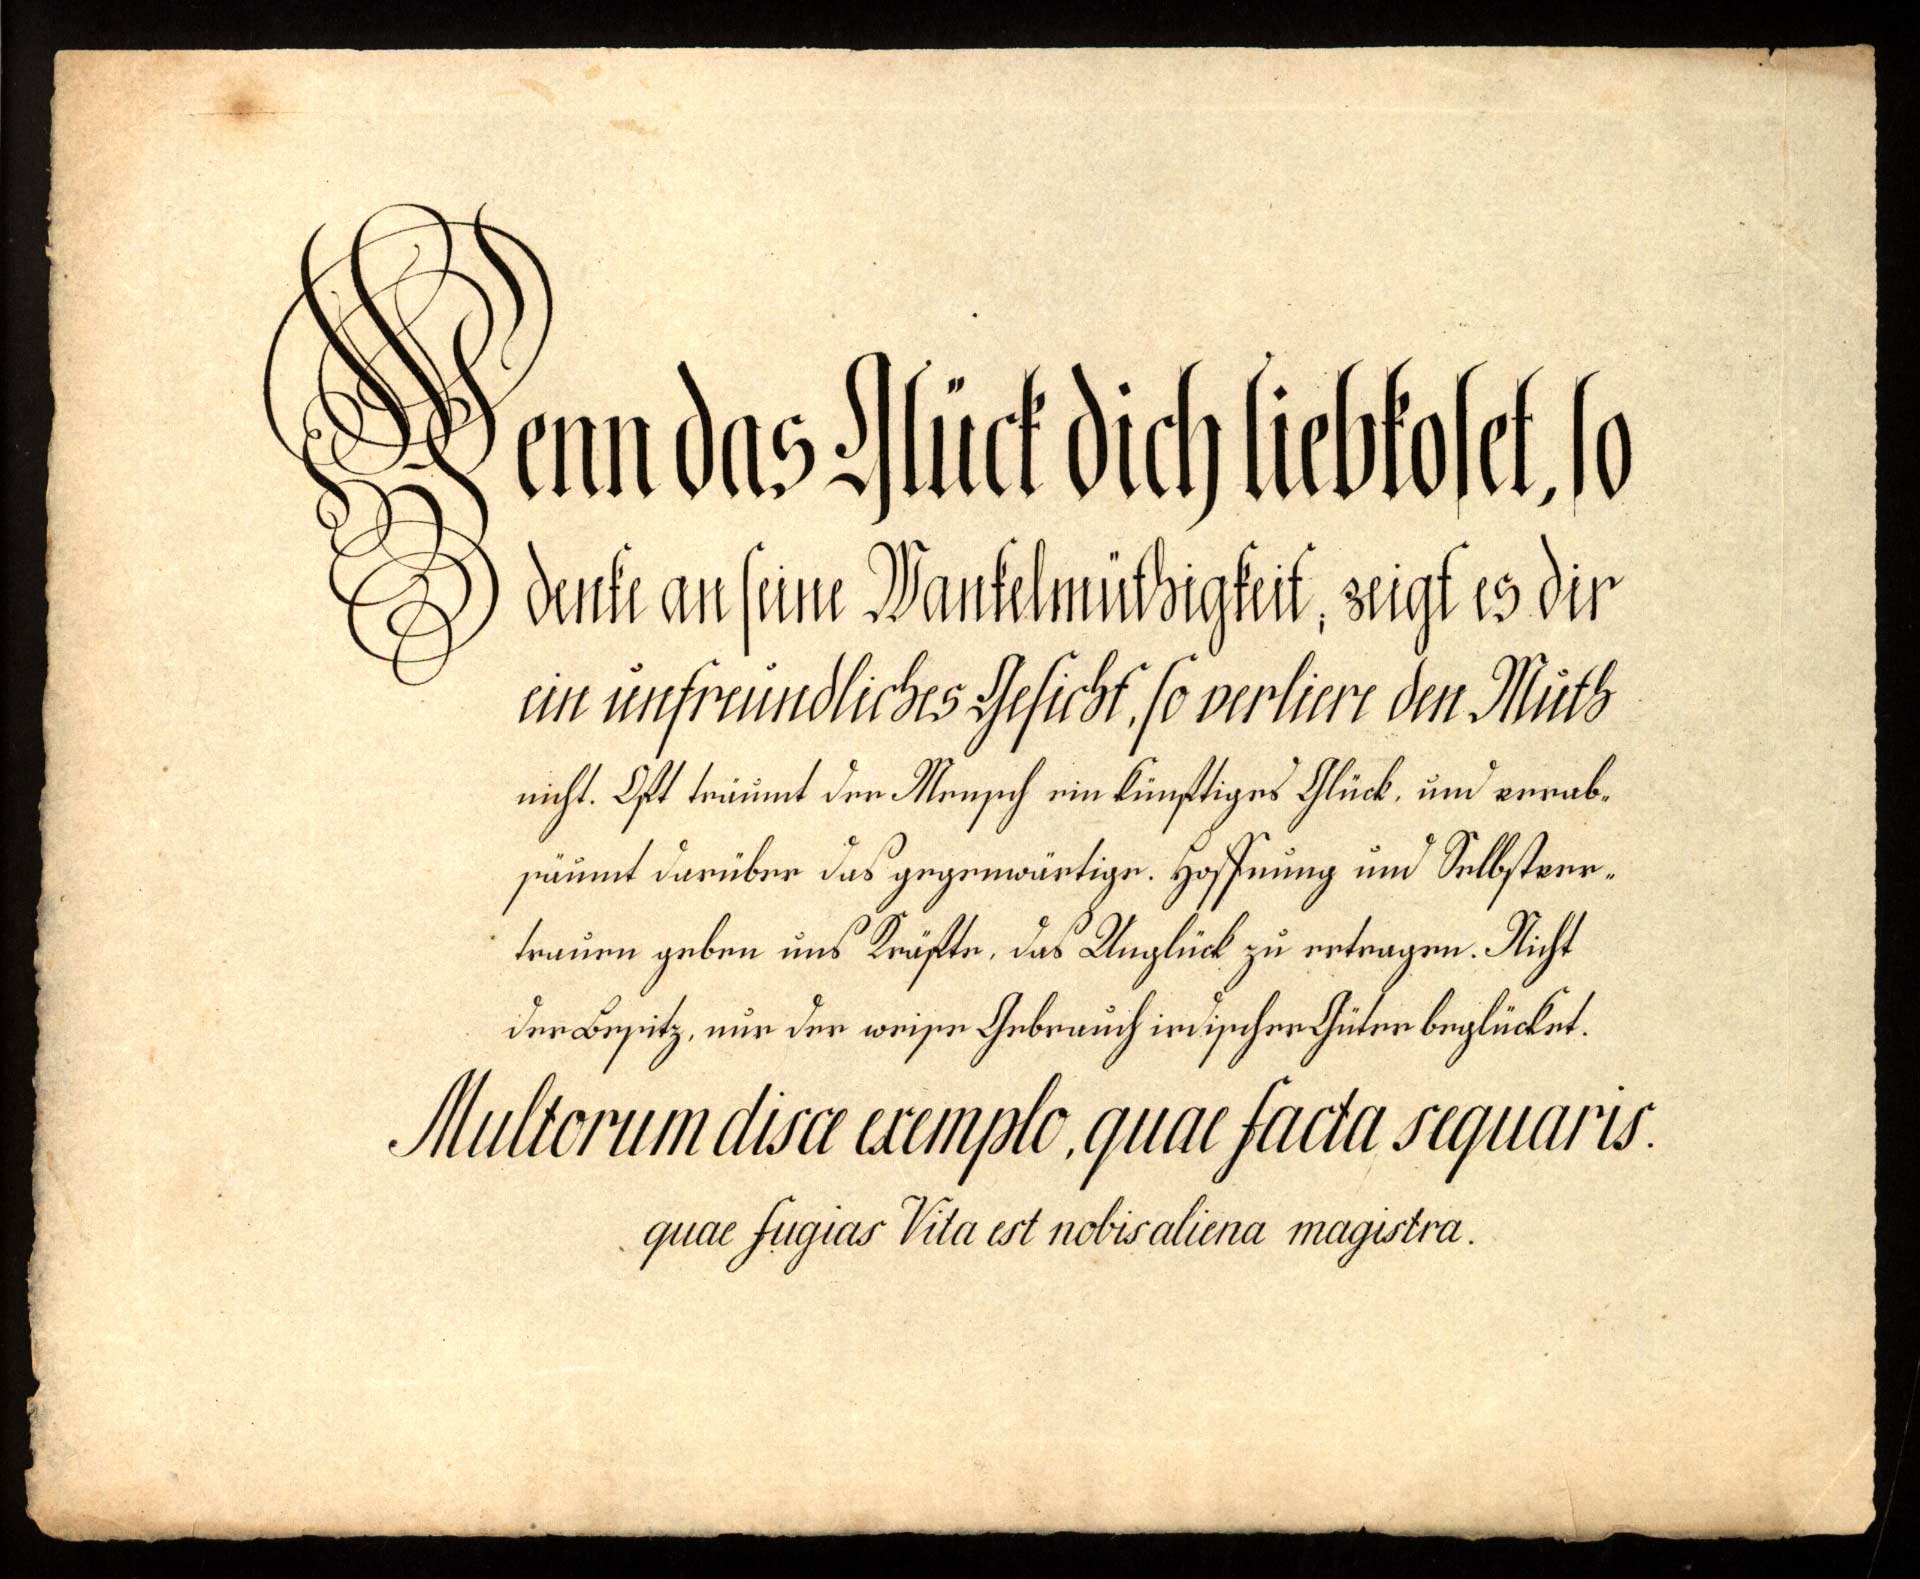 Wenn das Glück dich liebkoset, so
denke an seine Wankelmüthigkeit, zeigt es dir
ein unfreundliches Gesicht, so verliere den Muth
nicht. Oft träumt der Mensch ein künftiges Glück, und verab-
säumt darüber das gegenwärtige. Hoffnung und Selbstver-
trauen geben uns Kräfte, das Unglück zu ertragen. Nicht
der Besitz, nur der weise Gebrauch irdischer Güter beglücket.
Multorum disce exemplo, quae facta sequaris.
quae fugias Vita est nobis aliena magistra.